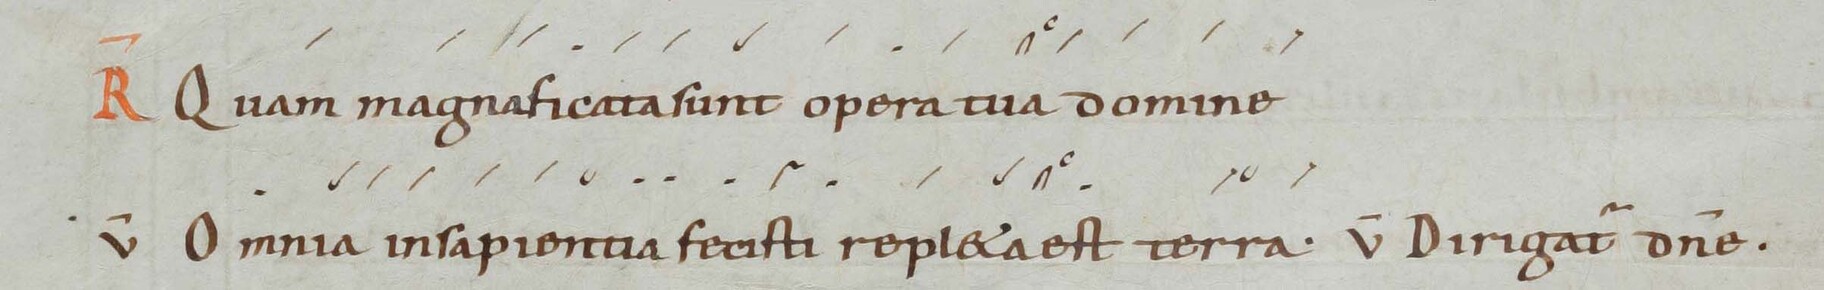 R̄ Quam magnaficata sunt opera tua domine
v̄ Omnia insapientia fecisti repl&a est terra. v̄ Dirigat᷑ dn̄e.